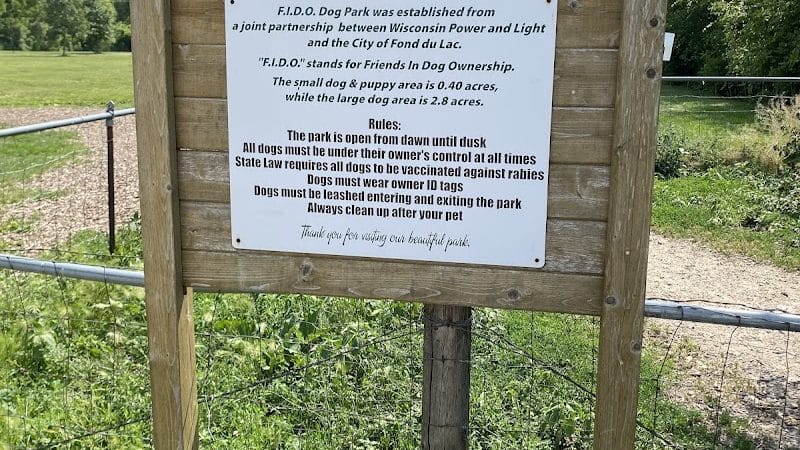 F.I.D.O. Dog Park was established from
a joint partnership between Wisconsin Power and Light
and the City of Fond du Lac.
"F.I.D.O." stands for Friends In Dog Ownership.
The small dog & puppy area is 0.40 acres,
while the large dog area is 2.8 acres.
Rules:
The park is open from dawn until dusk
All dogs must be under their owner's control at all times
State Law requires all dogs to be vaccinated against rabies
Dogs must wear owner ID tags
Dogs must be leashed entering and exiting the park
Always clean up after your pet
Thank you for visiting our beautiful park.